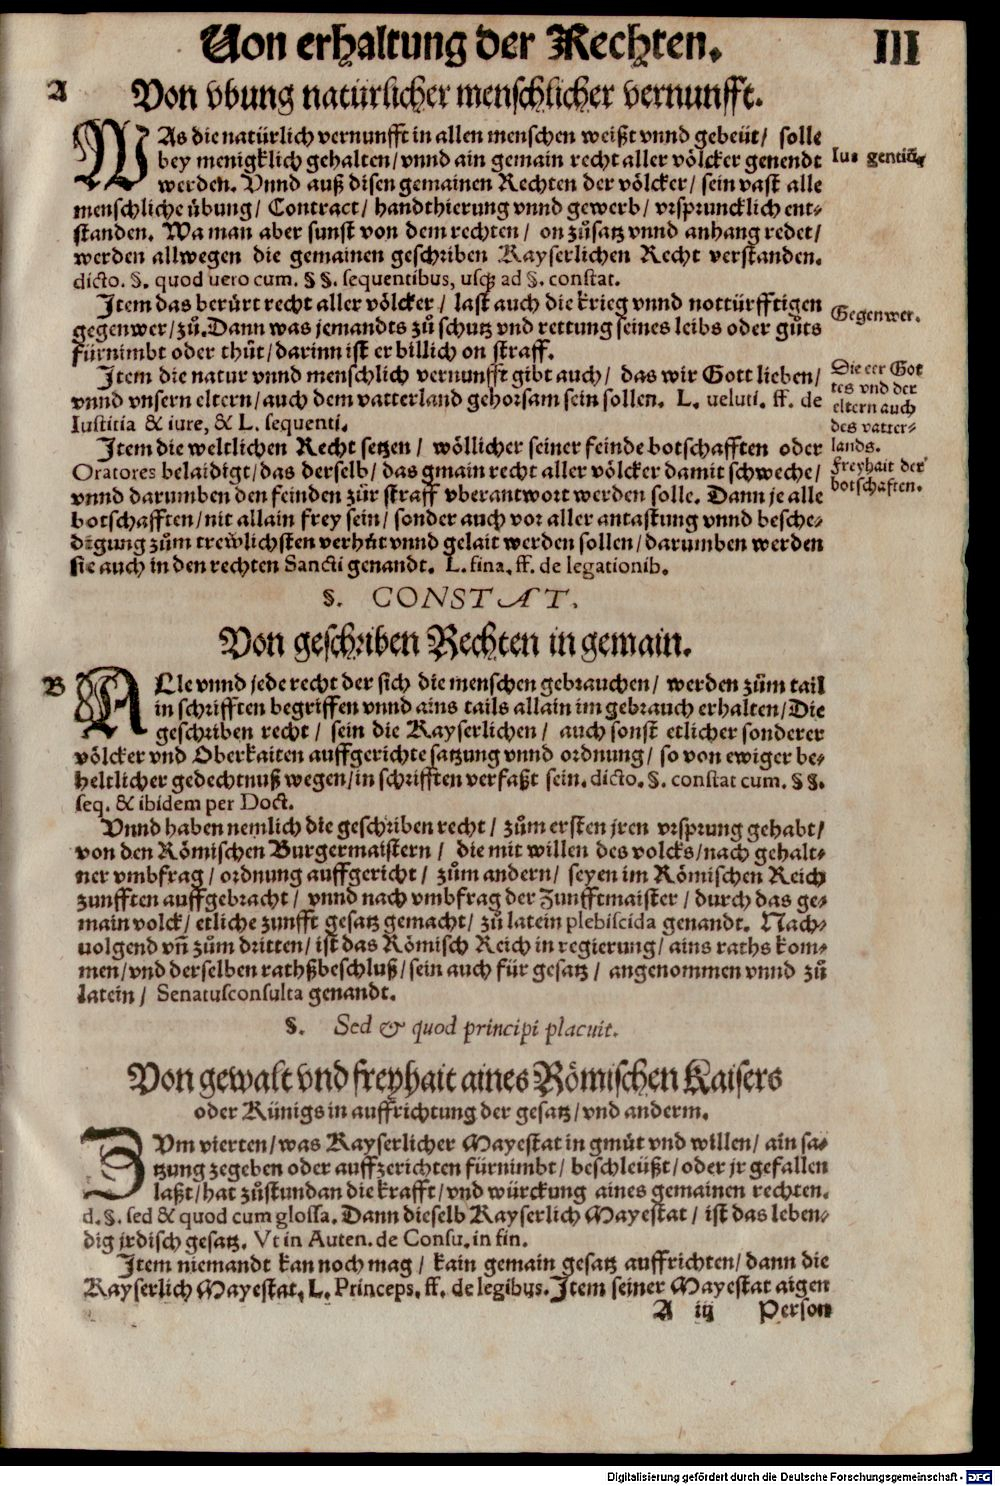 Von erhaltung der Rechten. III
A Von vbung natürlicher menschlicher vernunfft.
WAs die natürlich vernunfft in allen menschen weißt vnnd gebeüt / solle
bey menigklich gehalten / vnnd ain gemain recht aller völcker genendt
werden. Vnnd auß disen gemainen Rechten der völcker / sein vast alle
menschliche übung / Contract / handthierung vnnd gewerb / vrspruncklich ent⸗
standen. Wa man aber sunst von dem rechten / on zůsatz vnnd anhang redet /
werden allwegen die gemainen geschriben Kayserlichen Recht verstanden.
dicto. §. quod uero cum. §§. sequentibus, usq; ad §. constat.
Ius gentiũ.
Item das berürt recht aller völcker / laßt auch die krieg vnnd nottürfftigen
gegenwer / zů. Dann was jemandts zů schutz vnd rettung seines leibs oder gůts
fürnimbt oder thůt / darinn ist er billich on straff.
Gegenwer.
Item die natur vnnd menschlich vernunfft gibt auch / das wir Gott lieben /
vnnd vnsern eltern / auch dem vatterland gehorsam sein sollen. L. ueluti. ff. de
Iustitia & iure, & L. sequenti.
Die eer Got
tes vnd der
eltern auch
des vatter⸗
lands.
Item die weltlichen Recht setzen / wöllicher seiner feinde botschafften oder
Oratores belaidigt / das derselb / das gmain recht aller völcker damit schweche /
vnnd darumben den feinden zůr straff vberantwort werden solle. Dann je alle
botschafften / nit allain frey sein / sonder auch vor aller antastung vnnd besche⸗
digung zům trewlichsten verhůt vnnd gelait werden sollen / darumben werden
sie auch in den rechten Sancti genandt. L. fina. ff. de legationib.
Freyhait der
botschaften.
§. CONSTAT.
Von geschriben Rechten in gemain.
B ALle vnnd jede recht der sich die menschen gebrauchen / werden zům tail
in schrifften begriffen vnnd ains tails allain im gebrauch erhalten / Die
geschriben recht / sein die Kayserlichen / auch sonst etlicher sonderer
völcker vnd Oberkaiten auffgerichte satzung vnnd ordnung / so von ewiger be⸗
heltlicher gedechtnuß wegen / in schrifften verfaßt sein. dicto. §. constat cum. §§.
seq. & ibidem per Doct.
Vnnd haben nemlich die geschriben recht / zům ersten jren vrsprung gehabt /
von den Römischen Burgermaistern / die mit willen des volcks / nach gehalt⸗
ner vmbfrag / ordnung auffgericht / zům andern / seyen im Römischen Reich
zunfften auffgebracht / vnnd nach vmbfrag der Zunfftmaister / durch das ge⸗
main volck / etliche zunfft gesatz gemacht / zů latein plebiscida genandt. Nach⸗
uolgend vñ zům dritten / ist das Römisch Reich in regierung / ains raths kom⸗
men / vnd derselben rathßbeschluß / sein auch für gesatz / angenommen vnnd zů
latein / Senatusconsulta genandt.
§. Sed & quod principi placuit.
Von gewalt vnd freyhait aines Römischen Kaisers
oder Künigs in auffrichtung der gesatz / vnd anderm.
ZVm vierten / was Kayserlicher Mayestat in gmůt vnd willen / ain sa⸗
tzung zegeben oder auffzerichten fürnimbt / beschleüßt / oder jr gefallen
laßt / hat zůstundan die krafft / vnd würckung aines gemainen rechten.
d. §. sed & quod cum glossa. Dann dieselb Kayserlich Mayestat / ist das leben⸗
dig jrdisch gesatz. Vt in Auten. de Consu. in fin.
Item niemandt kan noch mag / kain gemain gesatz auffrichten / dann die
Kayserlich Mayestat. L. Princeps. ff. de legibus. Item seiner Mayestat aigen
A iij Person
Digitalisierung gefördert durch die Deutsche Forschungsgemeinschaft - DFG